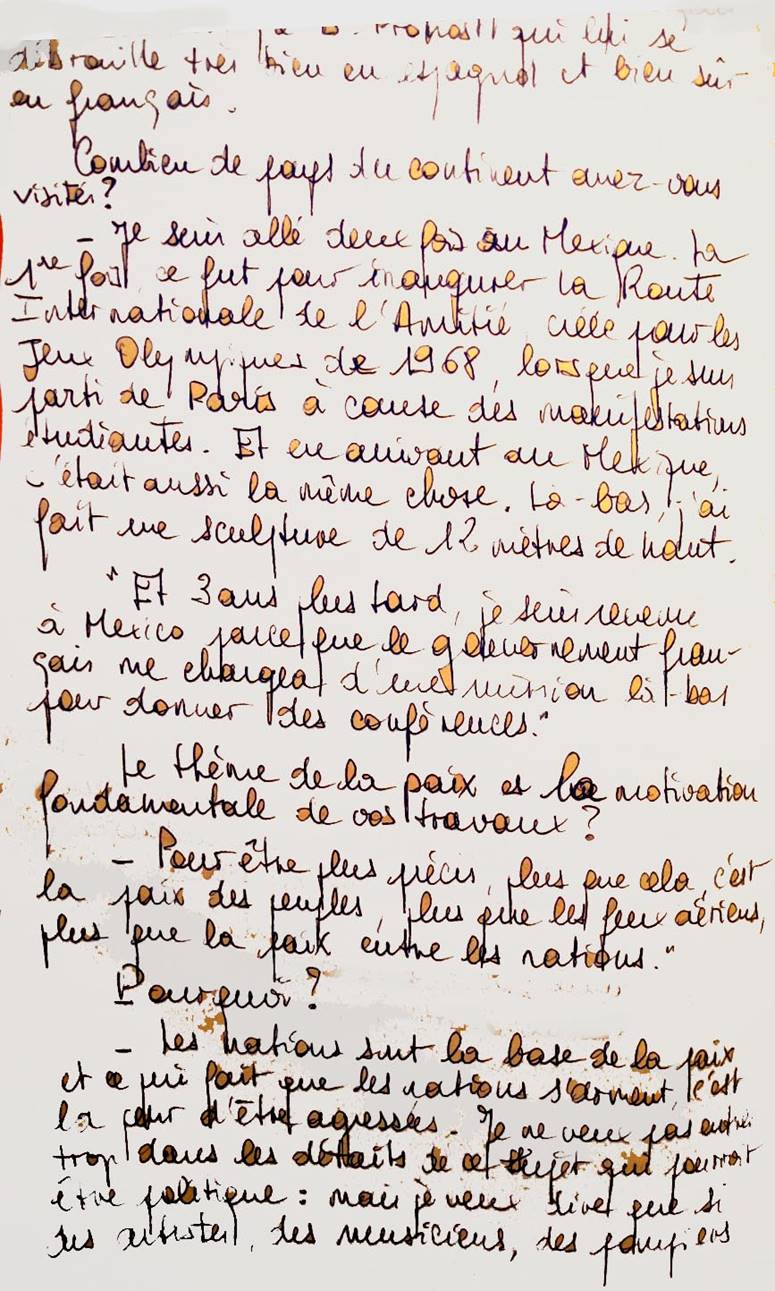 qui lui se
débrouille très bien en espagnol et bien sûr
en français.
Combien de pays du continent avez-vous
visités?
- Je suis allé deux fois au Mexique. La
1re fois, ce fut pour inaugurer la Route
Internationale de l'Amitié, créée pour les
Jeux Olympiques de 1968, lorsque je suis
parti de Paris à cause des manifestations
étudiantes. Et en arrivant au Mexique,
c'était aussi la même chose. Là-bas, j'ai
fait une sculpture de 12 mètres de haut.
"Et 3 ans plus tard, je suis revenu
à Mexico parce que le gouvernement fran-
çais me chargea d'une mission là-bas
pour donner des conférences."
Le thème de la paix est la motivation
fondamentale de vos travaux?
- Pour être plus précis, plus que cela, c'est
la paix des peuples, plus que les feux aériens,
plus que la paix entre les nations."
Pourquoi?
- Les nations sont la base de la paix
et ce qui fait que les nations s'arment, c'est
la peur d'être agressées. Je ne veux pas entrer
trop dans les détails de ce sujet qui pourrait
être politique: mais je veux dire que si
des artistes, des musiciens, des pompiers